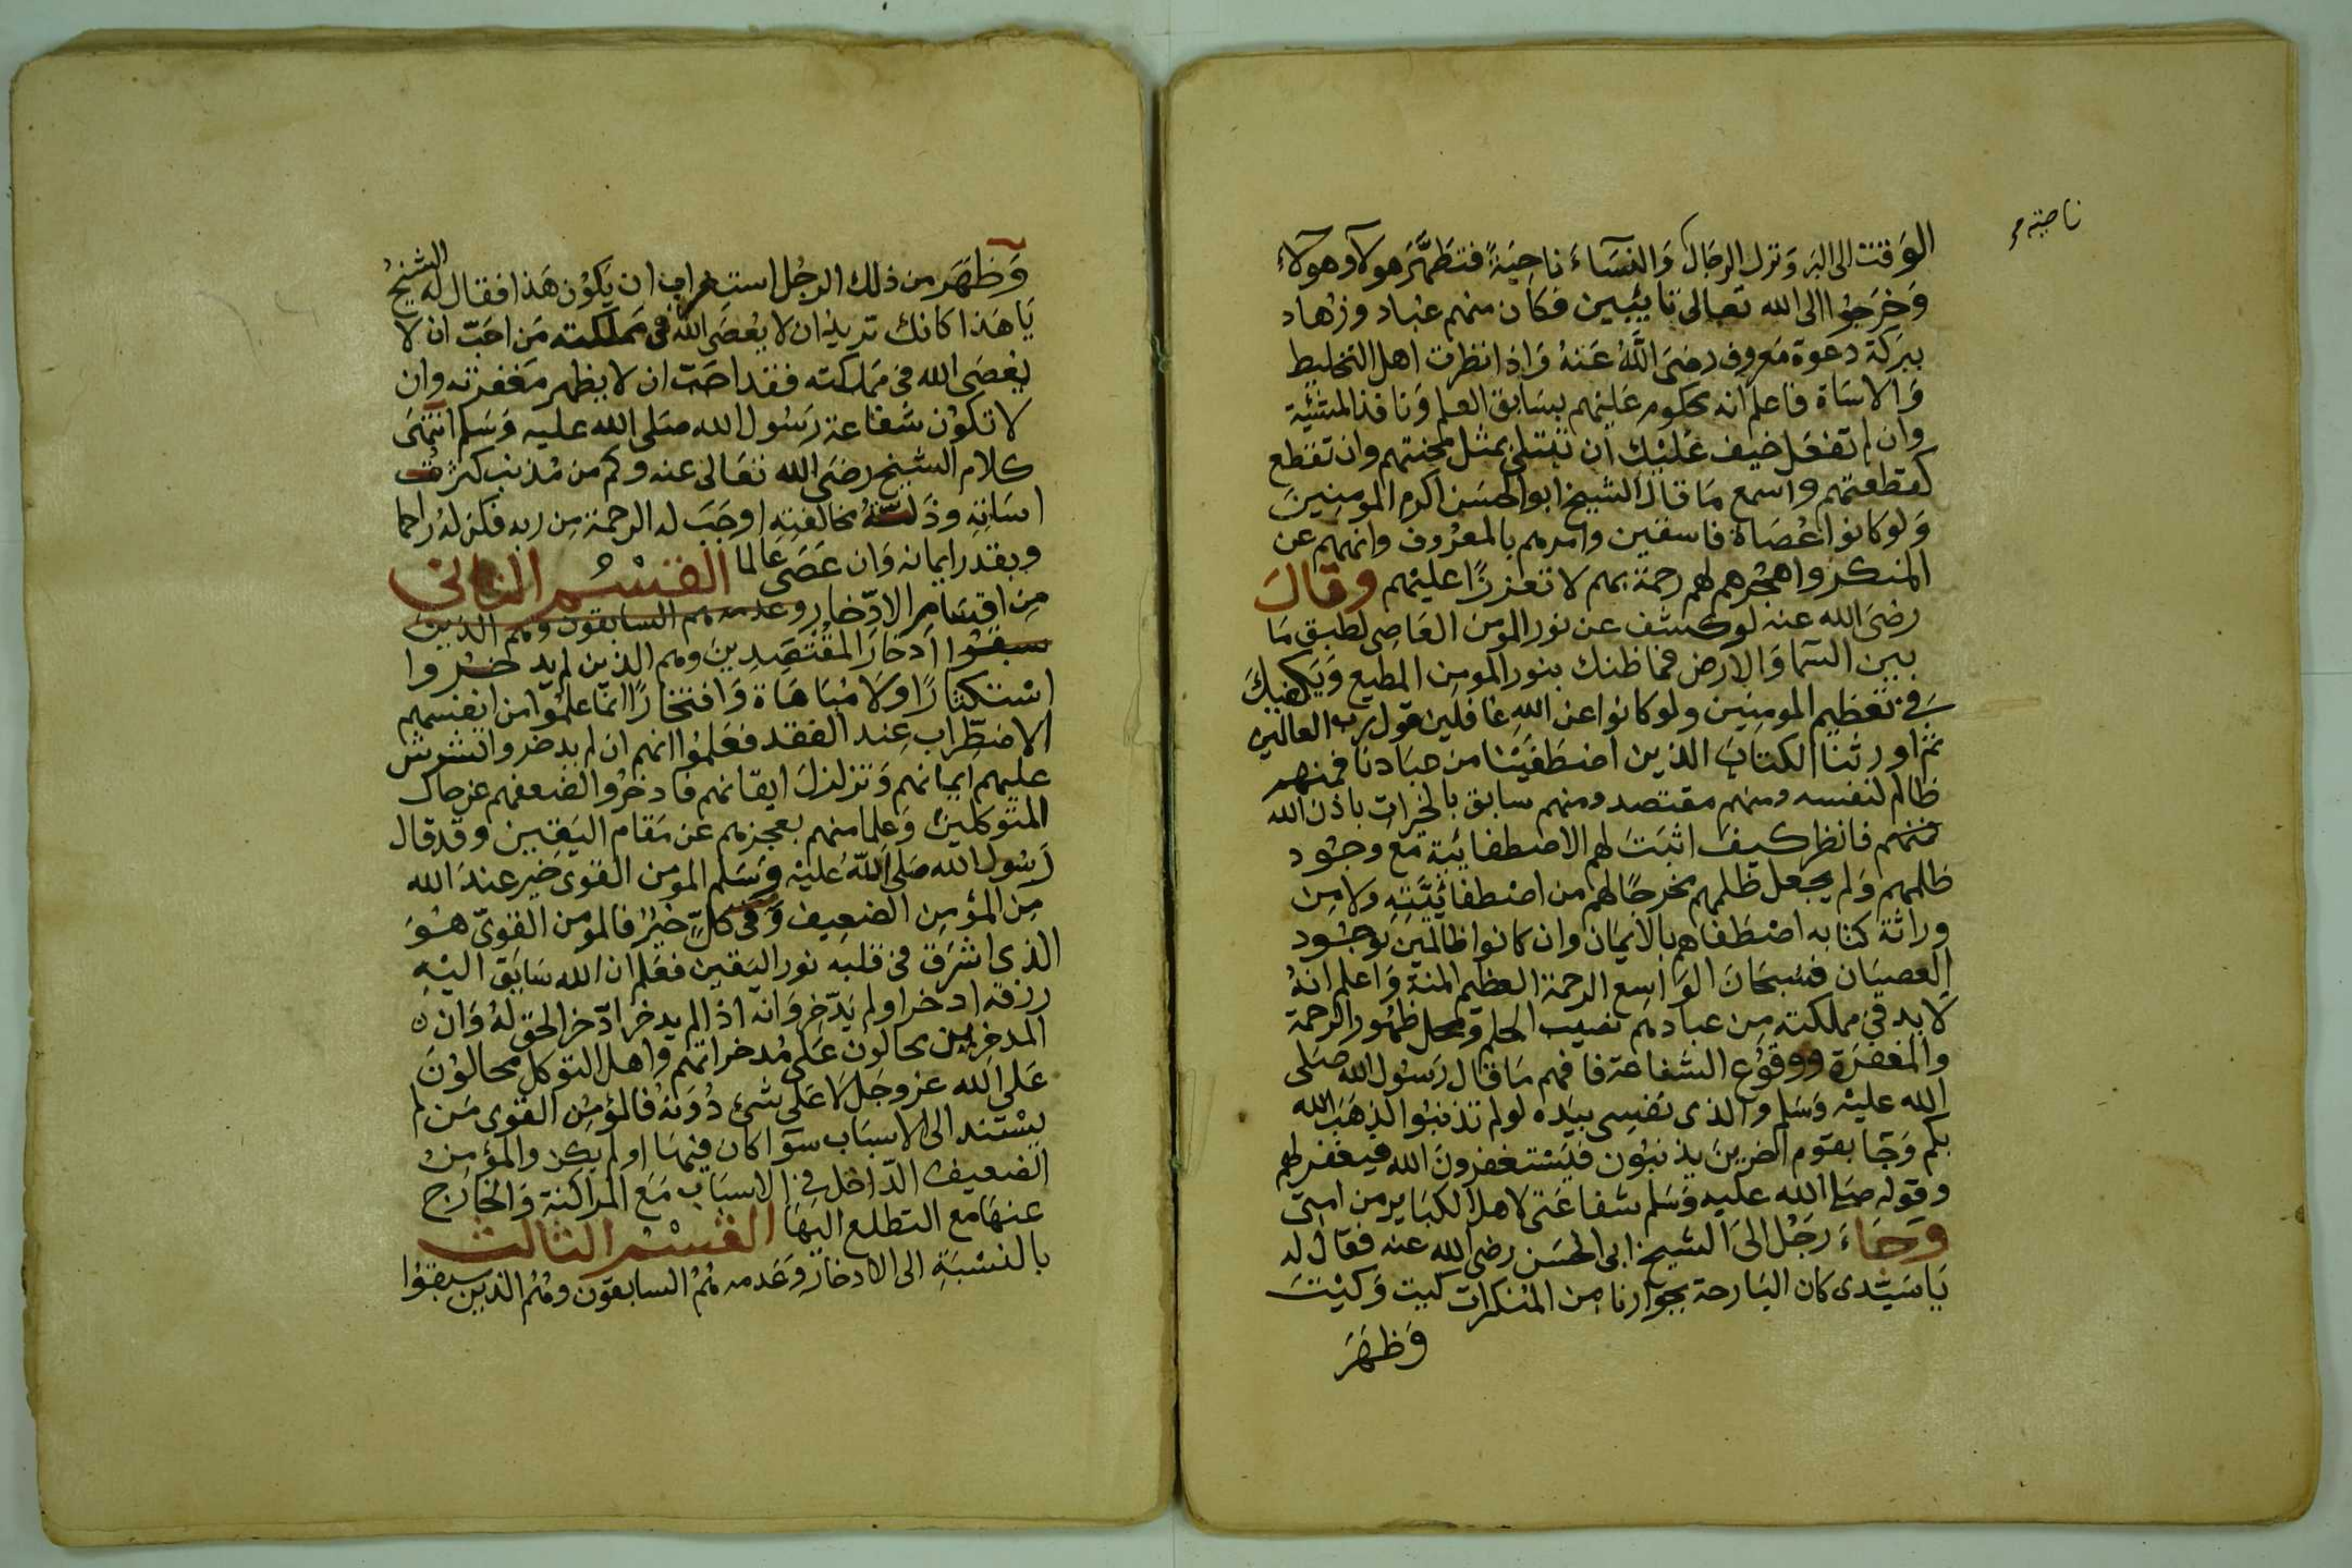 ناحية
الوقت الى البر ونزل الرجال والنساء ناحيةً فتطهَّر هولاء وهولاء
وَخرجُوا الى الله تعالى تايبين فكان منهم عبّاد وزهاد
ببركة دعوة معروف رضى اللّه عنهُ وَاذا نظرت اهل التخليط
وَالاساة فاعلم انه محكوم عليهم بسابق العلم ونافذ المشئية
وان لم تفعل خيف عَليْك ان تبتلى بمثل محنتهم وان تقطع
كقطعتهم واسمع مَا قال الشيخ ابوالحسَن اكرم المومنينَ
وَلو كانوا عُصَاة فاسقين وامرهم بالمعرُوف وانههم عن
المنكر واهجُرهم لهم رحمة بهم لا تعززًا عليْهم وقالَ
رضىَ الله عنه لو كشف عن نور المومن العَاصِى لطبق مَا
بين السّما وَالارض فما ظنك بنور المومن المطيع وَيَكفيكَ
فى تعظيم المومنِين ولو كانوا عن اللهِ غافلين قول رب العالمين
ثم اورثنا الكتابَ الذين اصْطَفَيْنا من عبَادنا فمنهم
ظالم لنفسه ومنهم مقتصد ومنهم سابق بالخيراتِ باذن الله
فمنهم فانظر كيفَ اثبتَ لهم الاصطفائية مَع وجُود
ظلمهم وَلم يجعل ظلمهم مخرجًا لهم من اصْطفائيَّتِهِ ولا من
وراثة كتابه اصْطَفاهم بالايمَان وان كانوا ظالمينَ بوجُود
العصيَان فسُبحَانَ الوَاسِع الرحمة العظيم المنة وَاعلم انهُ
لا بد فى مملكته من عبادهم نصيب الحلم ومحل ظهُور الرحمة
والمغفرَة ووقوُع الشفاعة فافهم مَا قال رَسُول الله صَلى
الله عليْه وَسَلم والذى نَفسِى بيَده لو لم تذنبُوا لذهَبَ الله
بكم وَجَا بقوم اخرينَ يذنبُون فيَسْتغفرونَ الله فيغفر لهم
وقوله صَلى الله عليه وَسَلم شفاعَتى لاهل الكبَاير من امتى
وَجَاءَ رَجُل الىَ الشيخ ابى الحسَن رضى الله عنه فقال له
يَا سَيّدى كان البَارحة بجوارنا من المنكرات كيت وَكيْتَ
وَظهَرَ
وَظهَرَ من ذلك الرجُل استغراب ان يكوُن هَذا فقال له الشيخُ
يَا هَذا كانك تريد ان لا يُعصَى اللهُ فى مَملكته مَن احَبّ ان لا
يعْصَى الله فى مَملكته فقد احَبّ ان لا يظهر مَغفرته وان
لا تكوُن شفاعة رَسُول الله صَلى الله عليه وَسَلم انتهَى
كلام الشيخ رضىَ الله تعَالى عنه وكم من مُذنب كثرت
اسَاتِهِ وذَلتُهُ مخالفِتِهِ اوجَبَ له الرحمة مِن ربه فكن لهُ راحما
وبقدر ايمانه وَان عَصَى عَالما القسْمُ الثانى
مِن اقسَامِ الادّخار وعدمه هم السابقون وهم الذين
سبقوا ادخارَ المُقْتصِدِينَ وهم الذين لم يدخروا
اسْتكثارًا وَلا مُبَاهَاة وَافتخارًا انمَّا علمُوا من انفسهم
الاضطِّرابَ عِند الفقد فعَلمُوا انهم ان لم يدخروا تشوش
عليهم ايمانهم وَتزلزلَ ايقانهم فادخرُوا لضعفهم عن حال
المتوكلينَ وَعلما منهم بعجزهم عن مَقام اليَقين وقد قال
رَسُول الله صَلى اللّهُ عليْه وَسَلم المومن القوىّ خَير عندَ الله
من المؤمِن الضعِيف وَفى كلٍّ خيرٌ فالمومن القوىّ هُوَ
الذى اشرَق فى قلبه نور اليَقين فعَلم ان الله سَابَق اليْهِ
رزقه ادخر او لم يَدّخِر وَانه اذا لم يدخر ادّخر الحق لهُ وَان
المدخرين يحالون عَلى مُدخراتهم واهل التوكل محالوُنَ
عَلى الله عز وجل لا عَلى شىءٍ دُونهُ فالمؤمِن القوى مَن لم
يسْتند الى الاسبَاب سوَآ كان فيهَا او لم يكن والمؤمن
الضعيف الدّاخل فى الاسبَاب مَع المراكنة وَالخارج
عنهَا مع التطلع اليَهَا القسْمُ الثالث
بالنسْبَةِ الى الادخار وَعَدمه هُمُ السابقوُن وهُمُ الذين سبقوُا